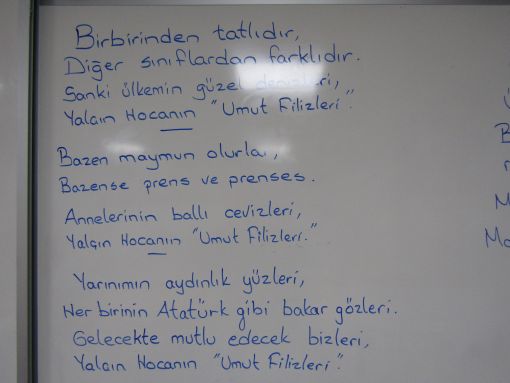 Birbirinden tatlıdır,
Diğer sınıflardan farklıdır.
Sanki ülkemin güzel denizleri,
Yalçın Hocanın "Umut Filizleri".
Bazen maymun olurlar,
Bazense prens ve prenses.
Annelerinin ballı cevizleri,
Yalçın Hocanın "Umut Filizleri."
Yarınımın aydınlık yüzleri,
Her birinin Atatürk gibi bakar gözleri.
Gelecekte mutlu edecek bizleri,
Yalçın Hocanın "Umut Filizleri".